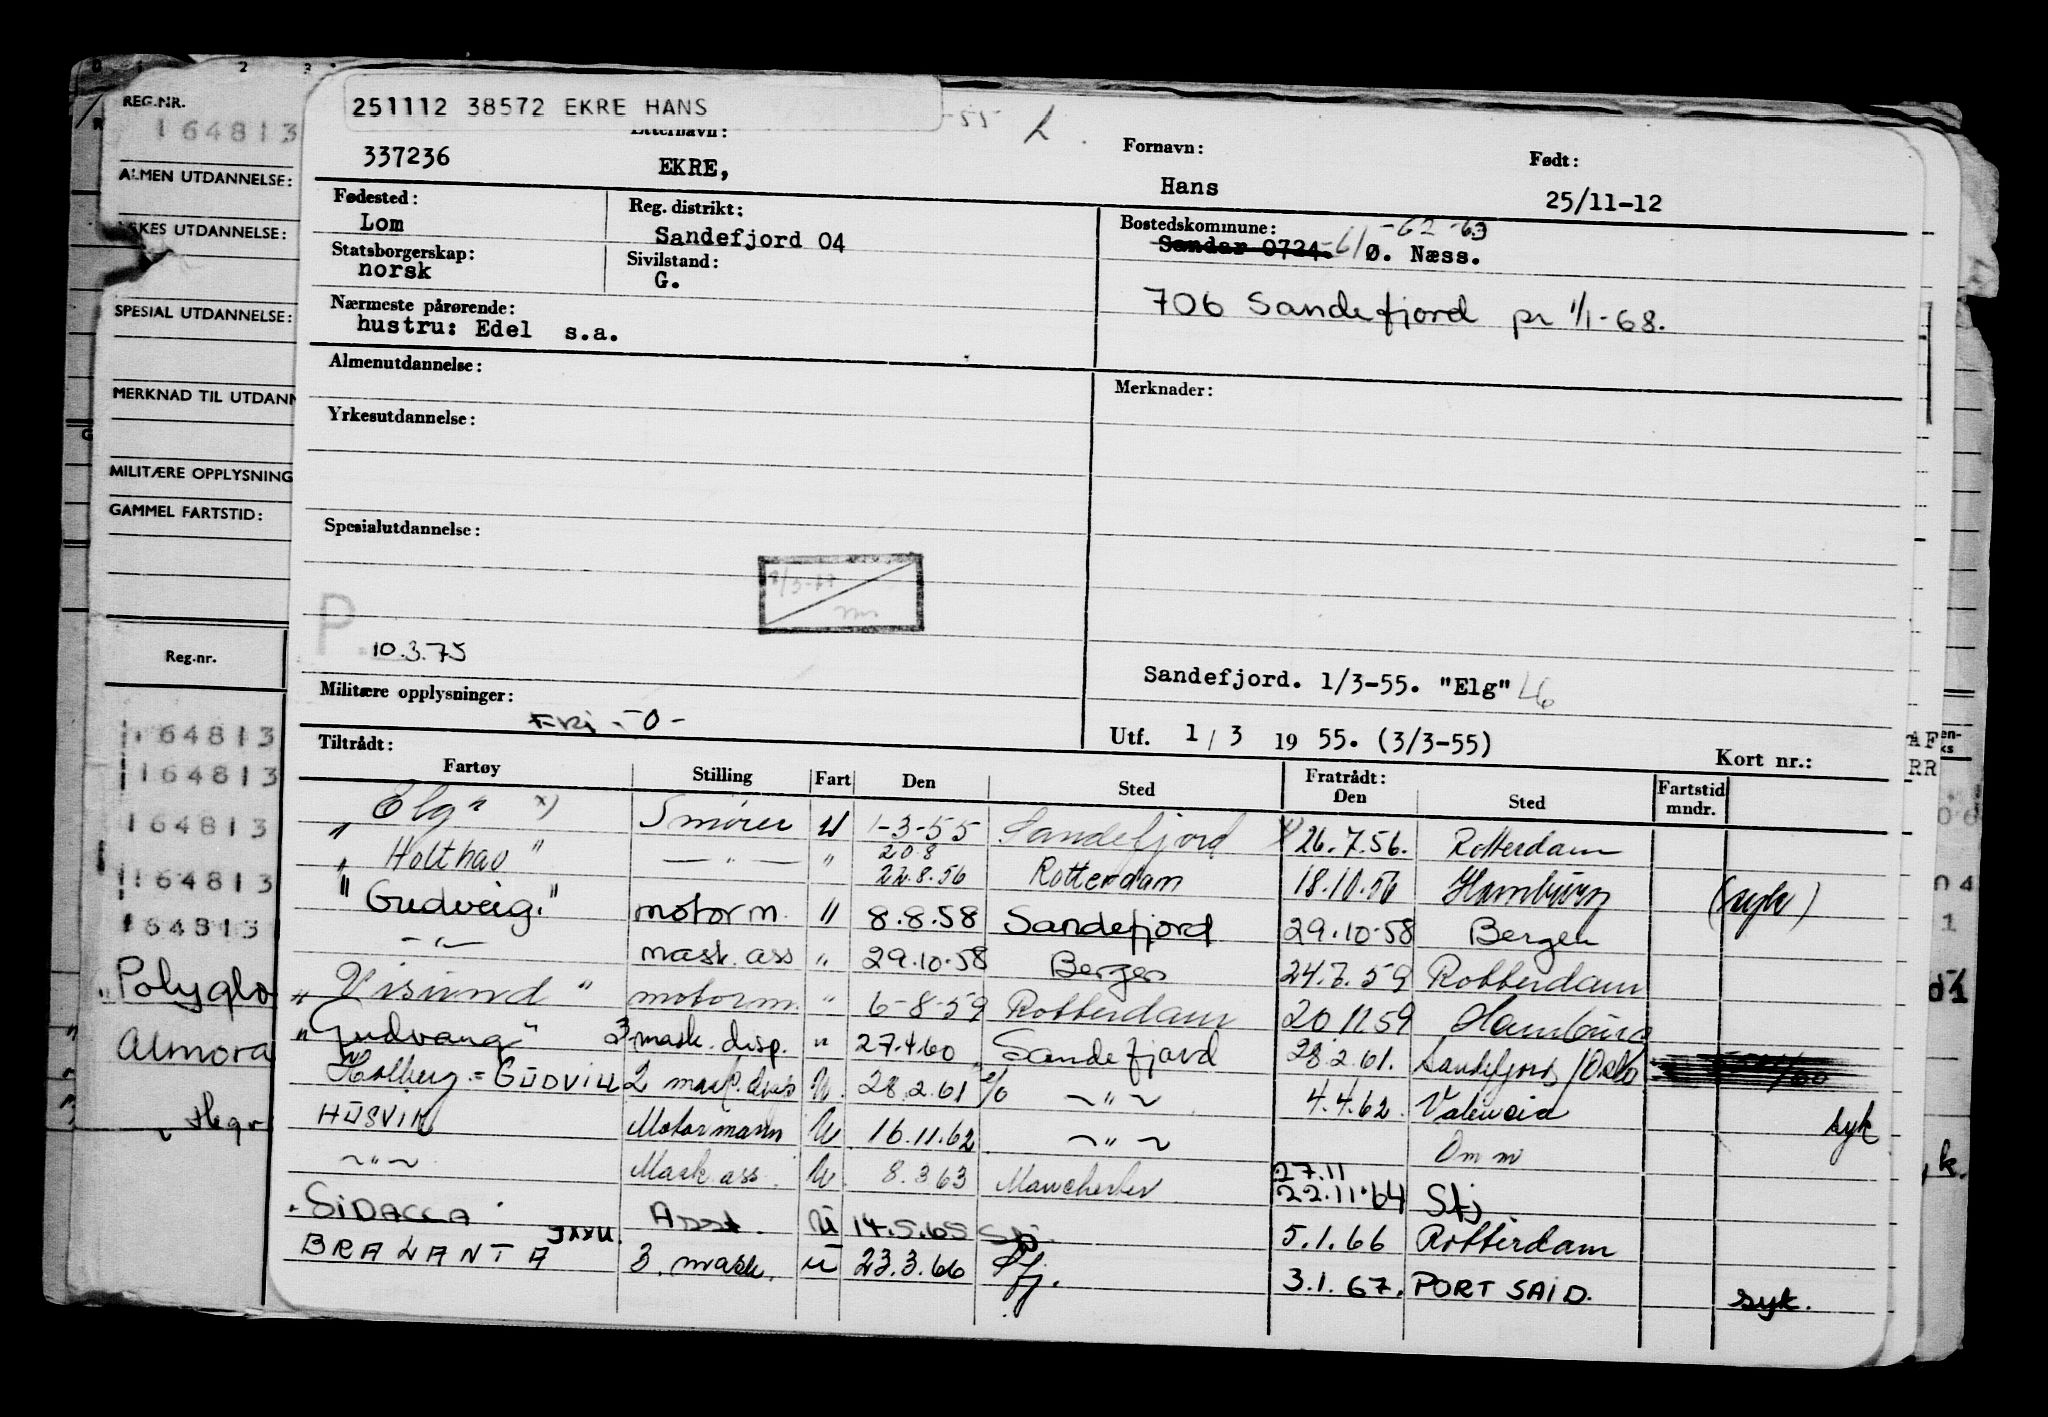 251112 38572 EKRE HANS
REG.NR.
164813
-55
Etternavn:
Fornavn:
Født:
337236
EKRE,
Hans
25/11-12
ALMEN UTDANNELSE:
Fødested:
Lom
Reg. distrikt:
Sandefjord 04
Bostedskommune:
Sandar 0724 -61 Ø. Næss. -62 -63
KES UTDANNELSE:
Statsborgerskap:
norsk
Sivilstand:
G.
706 Sandefjord pr 1/1-68.
SPESIAL UTDANNELSE:
Nærmeste pårørende:
hustru: Edel s.a.
Almenutdannelse:
Merknader:
MERKNAD TIL UTDANN
Yrkesutdannelse:
MILITÆRE OPPLYSNING
GAMMEL FARTSTID:
Spesialutdannelse:
P.
10.3.75
Reg.nr.
Sandefjord. 1/3-55. "Elg" L6
Militære opplysninger:
Fri -0-
Utf. 1/3 1955. (3/3-55)
Kort nr.:
Tiltrådt:
Fratrådt:
Fartøy Stilling Fart Den Sted Den Sted Fartstid mndr.
"Elg" x) Smører U 1-3-55 Sandefjord x) 26.7.56. Rotterdam
20 8
"Holthav" — " — " 22.8.56 Rotterdam 18.10.56 Hamburg (syk)
"Gudveig" motorm. " 8.8.58 Sandefjord 29.10.58 Bergen
- " - mask. ass " 29.10.58 Bergen 24.7.59 Rotterdam
"Visund" motorm. " 6-8-59 Rotterdam 20 11 59 Hamburg
"Gudvang" 3 mask. disp. " 27.4.60 Sandefjord 28.2.61. Sandefjord/Oslo
Holberg = GUDVILL 2 mask. disp U. 28.2.61 ~"~ 4.4.62. Valencia syk
HUSVIK Motormann U 16.11.62 ~"~ Omm
27.11
~"~ Mask. ass. U. 8.3.63 Manchester 22.11.64 Sfj
"SIDACCA" Asst. U 14.5.65 Sfj 5.1.66 Rotterdam
BRALANTA 3. mask. U 23.3.66 Sfj. 3.1.67. PORT SAID. syk.
164813
164813
164813
164813
164813
"Polyglo
Almora